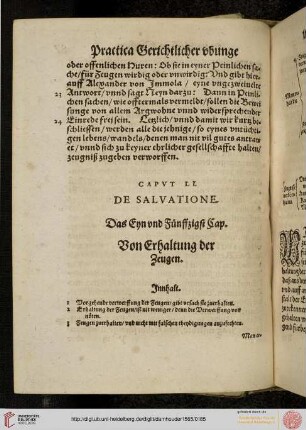 Practica Gerichtlicher vbunge
oder offenlichen Huren: Ob sie in eyner Peinlichen sa-
che/ für Zeugen wirdig oder vnwirdig: Vnd gibt hier-
auff Alexander von Immola / eyne vngezweiuelte
23 Antwort/ vnnd sagt Neyn darzu: Dann in Peinli-
chen sachen/ wie offtermals vermeldt/ sollen die Bewei
sunge von allem Argwohne vnnd widersprechender
24 Einrede frei sein. Letzlich/ vnnd damit wir kurtz be-
schliessen/ werden alle die jehnige/ so eynes vnzüchti-
gen lebens/ wandels/ denen man nit vil gutes antraw
et/ vnnd sich zu keyner ehrlicher gesellschafft halten/
zeugniß zugeben verworffen.
CAPVT LI.
DE SALVATIONE.
Das Eyn vnd Fünfftzigst Cap.
Von Erhaltung der
Zeugen.
Innhalt.
1 Vorgehende verwerffung der Zeugen/ gibt vrsach sie zuerhalten.
2 Erhaltung der Zeugen/ ist nit weniger/ denn die Verwerffung von
nöten.
3 Zeugen zuerhalten/ vnd nicht mit falschen theydigungen
Manu-
UNIVERSITÄTS-
BIBLIOTHEK
HEIDELBERG
http://digi.ub.uni-heidelberg.de/diglit/damhouder1565/0185